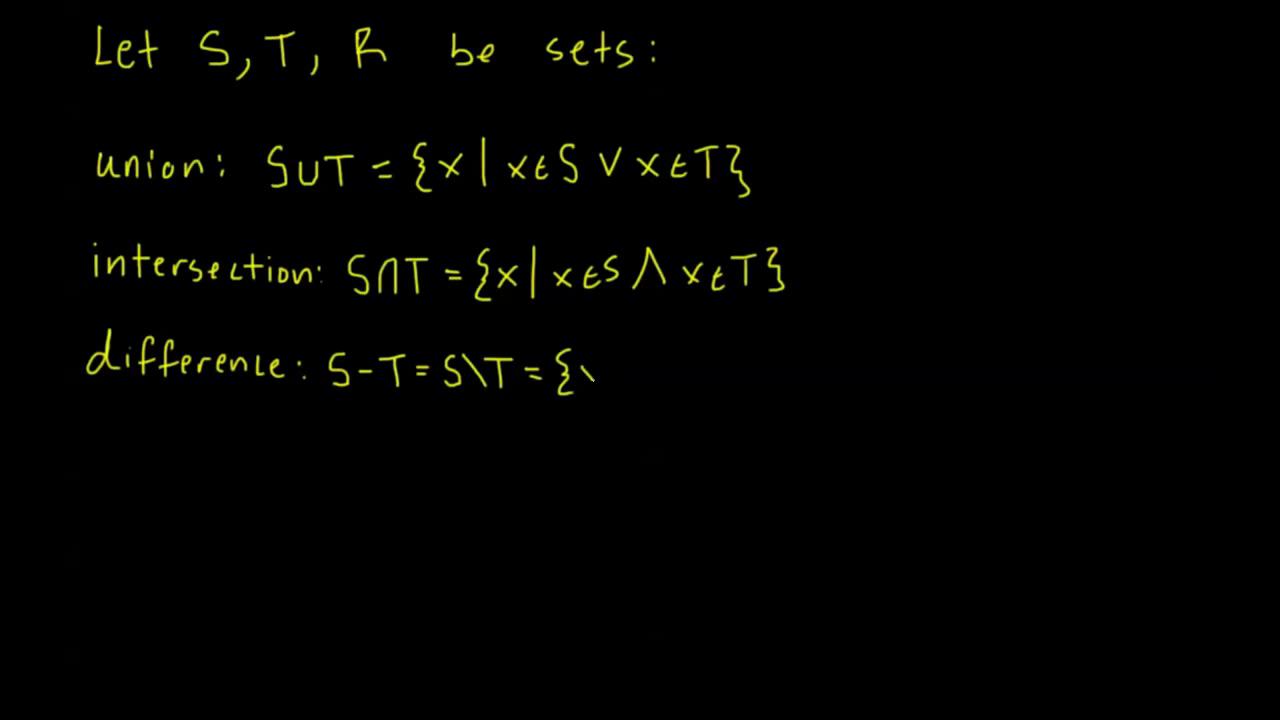 Let S, T, R be sets:
union: S∪T = {x | x∈S ∨ x∈T}
intersection: S∩T = {x | x∈S ∧ x∈T}
difference: S-T = S\T = {\